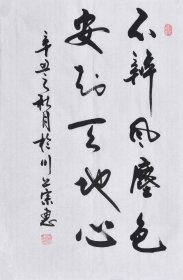 不辨風塵色
安知天地心
辛丑之秋月於川